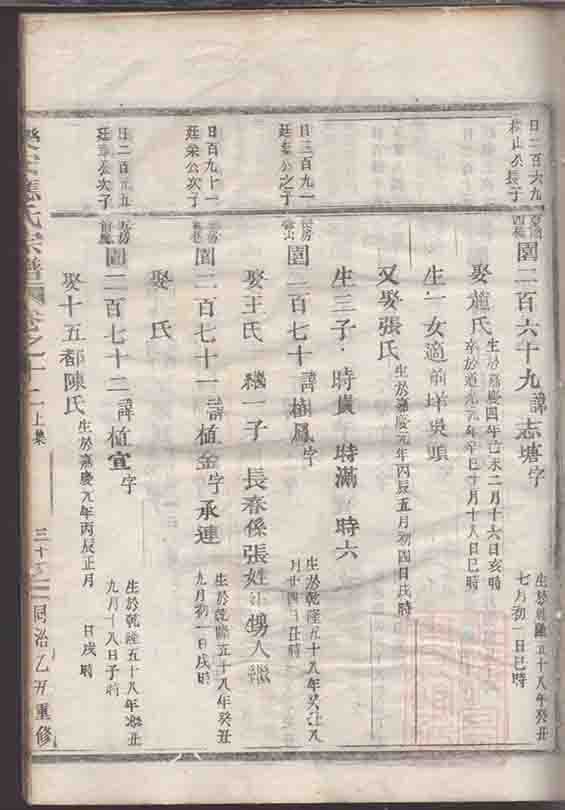 日二百六九
園二百六十九諱志塘字
生於乾隆五十八年癸丑
七月初一日巳時
娶施氏
生於嘉慶四年己未二月十六日亥時
卒於道光元年辛巳十月十八日巳時
生一女適前垟吳頭
又娶張氏
生於嘉慶元年丙辰五月初四日戌時
生三子時貴 時滿 時六
日三百九一
廷奉公之子
園二百七十諱植鳳字
生於乾隆五十八年癸丑八
月廿四日丑時
娶王氏 繼一子 長春係張姓 甥入繼
日百九十一
廷榮公次子
園二百七十一諱植金字承連
生於乾隆五十八年癸丑
九月初一日戌時
娶 氏
廷 公次子
園二百七十二諱植宣字
生於乾隆五十八年癸丑
九月十八日子時
娶十五都陳氏
生於嘉慶元年丙辰正月 日戌時
氏宗譜 卷之十二上集
同治乙丑重修